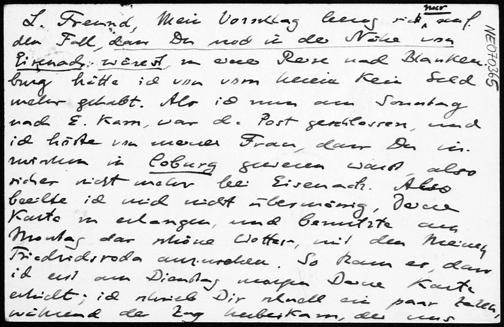 L. Freund, Mein Vorschlag bezog sich nur auf
den Fall, dass Du noch in der Nähe von
Eisenach wärest, zu einer Reise nach Blanken
burg hätte ich von vorn herein kein Geld
mehr gehabt. Als ich nun am Sonntag
nach E. kam, war d. Post geschlossen, und
ich hörte von meiner Frau, dass Du in
zwischen in Coburg gewesen warst also
sicher nicht mehr bei Eisenach. Also
beeilte ich mich nicht übermässig, Deine
Karte zu erlangen, und benutzte am
Montag das schöne Wetter, mit den Meinen
Friedrichsroda anzusehen. So kam es, dass
ich erst am Dienstag morgen Deine Karte
erhielt; ich schrieb Dir schnell ein paar Zeilen,
während der Zug heberkam, der uns
NE070365